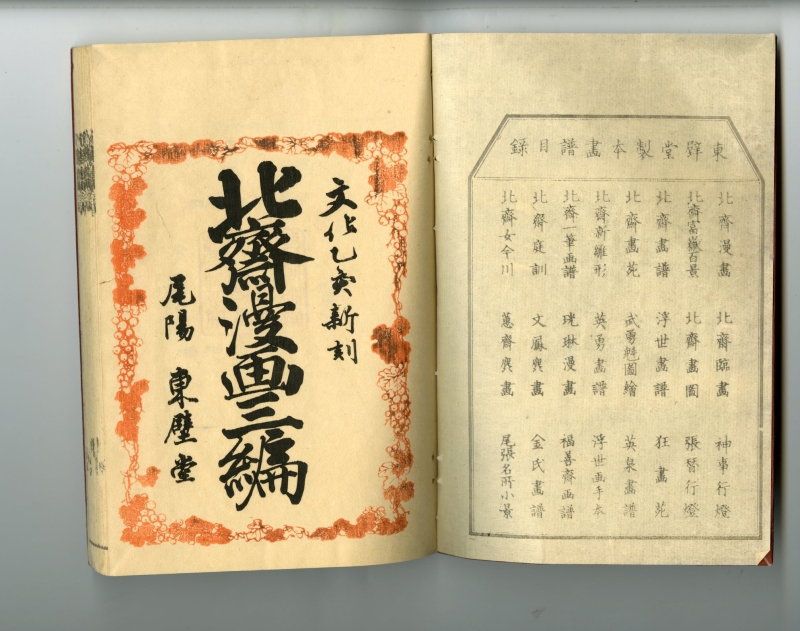 東壁堂製本畫譜目録
北齋漫畫 北齋臨畫 神事行燈
北齋富嶽百景 北齋畫圖 張替行燈
北齋畫譜 浮世畫譜 狂畫苑
北齋畫苑 武勇魁圖繪 英泉畫譜
北齋新雛形 英勇畫譜 浮世画手本
北齋一筆画譜 光琳漫畫 福善齋画譜
北齋庭訓 文鳳麁畫 金氏畫譜
北齋女今川 蕙齋麁畫 尾張名所小景
文化乙亥新刻
北齋漫画三編
尾陽 東壁堂